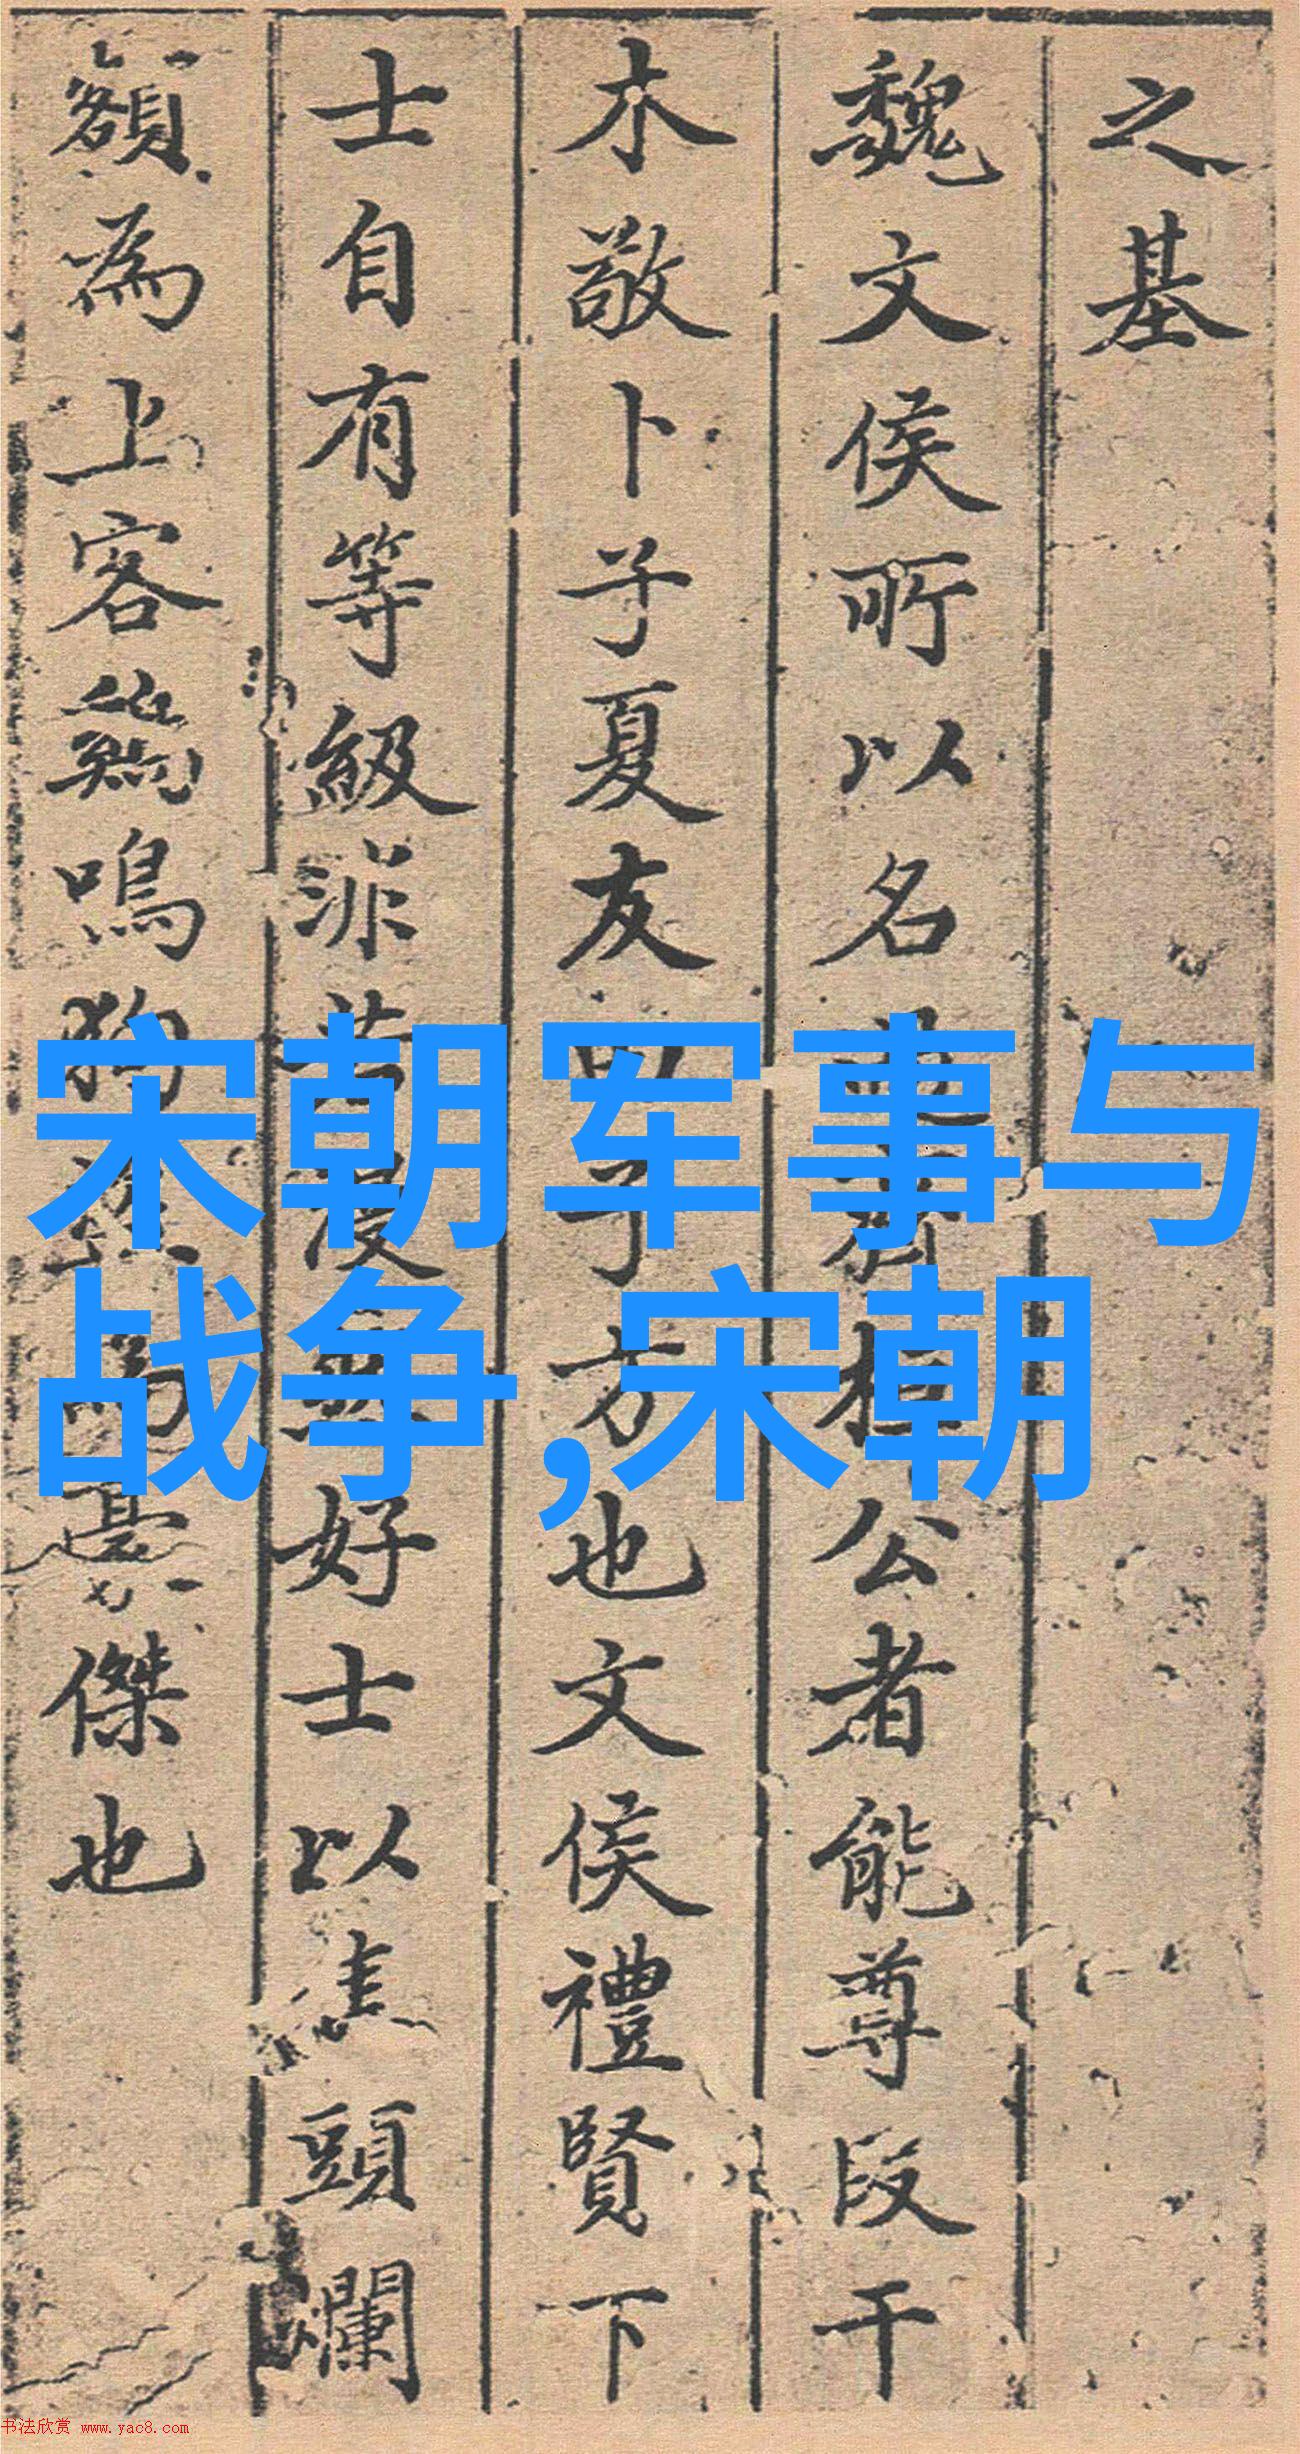 之基
魏文侯所以名
公者能尊段干
木敬卜子夏友
方也文侯禮賢下
士自有等級
好士以焦頭爛
額為上客
鳴狗
傑也
宋朝军事与
战争,宋朝
书法欣赏 www.yac8.com